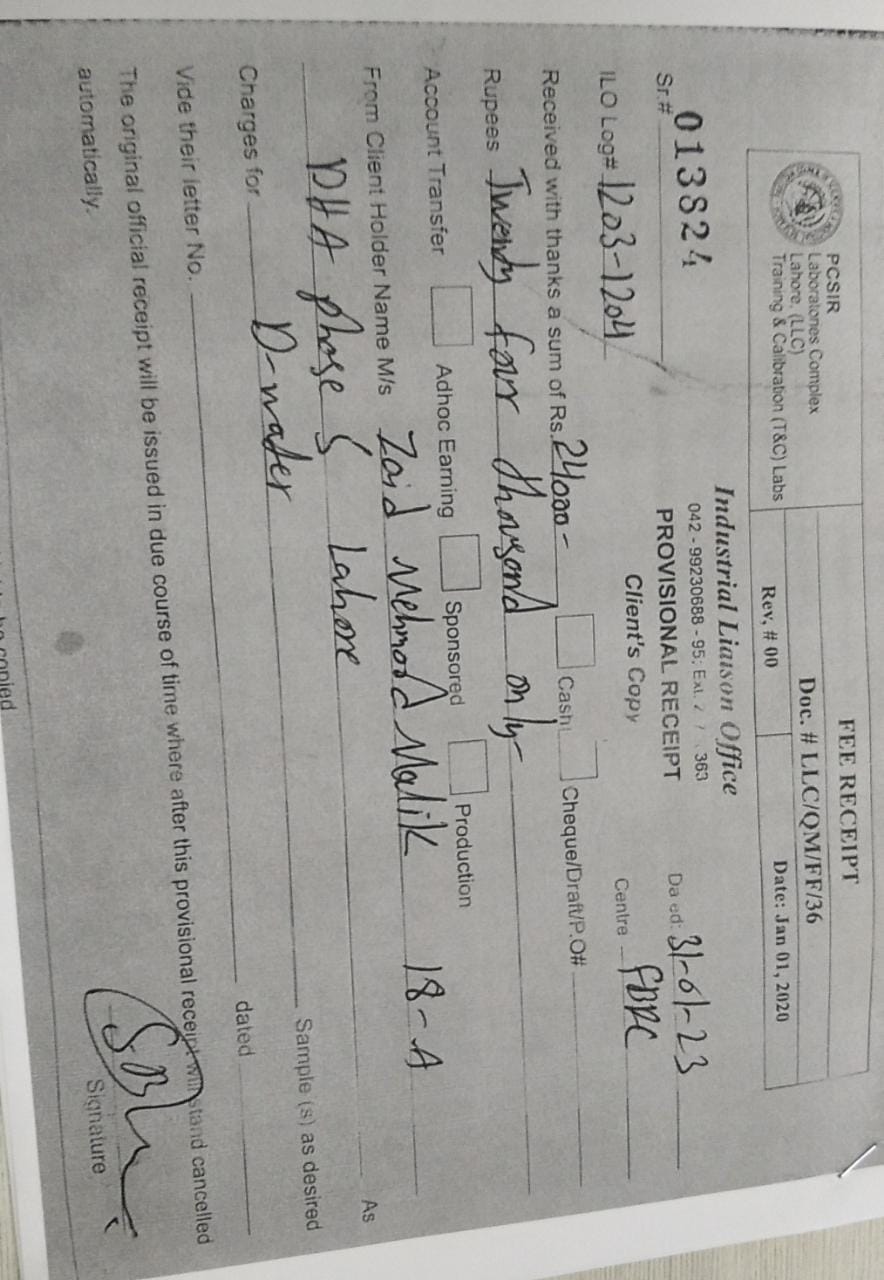 PCSIR
Laboratories Complex
Lahore. (LLC)
Training & Calibration (T&C) Labs
FEE RECEIPT
Doc. # LLC/QM/FF/36
Rev, # 00 Date: Jan 01, 2020
Industrial Liaison Office
042 - 99230688 - 95: Ext. 363
PROVISIONAL RECEIPT
Client's Copy
Sr.# 013824 Dated: 31-01-23
ILO Log# 1203-1204 Centre
Received with thanks a sum of Rs. 24000- Cash Cheque/Draft/P.O#
Rupees Twenty four thousand only
Account Transfer Adhoc Earning Sponsored Production
From Client Holder Name M/s Zaid Mehmood Malik 18-A
DHA phase 5 Lahore As
Charges for D-water Sample (s) as desired
Vide their letter No. dated
The original official receipt will be issued in due course of time where after this provisional receipt will stand cancelled
automatically.
Signature
copied